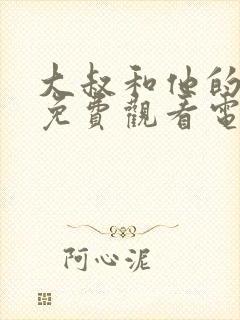 大叔和他的
免費觀看電
阿心泥